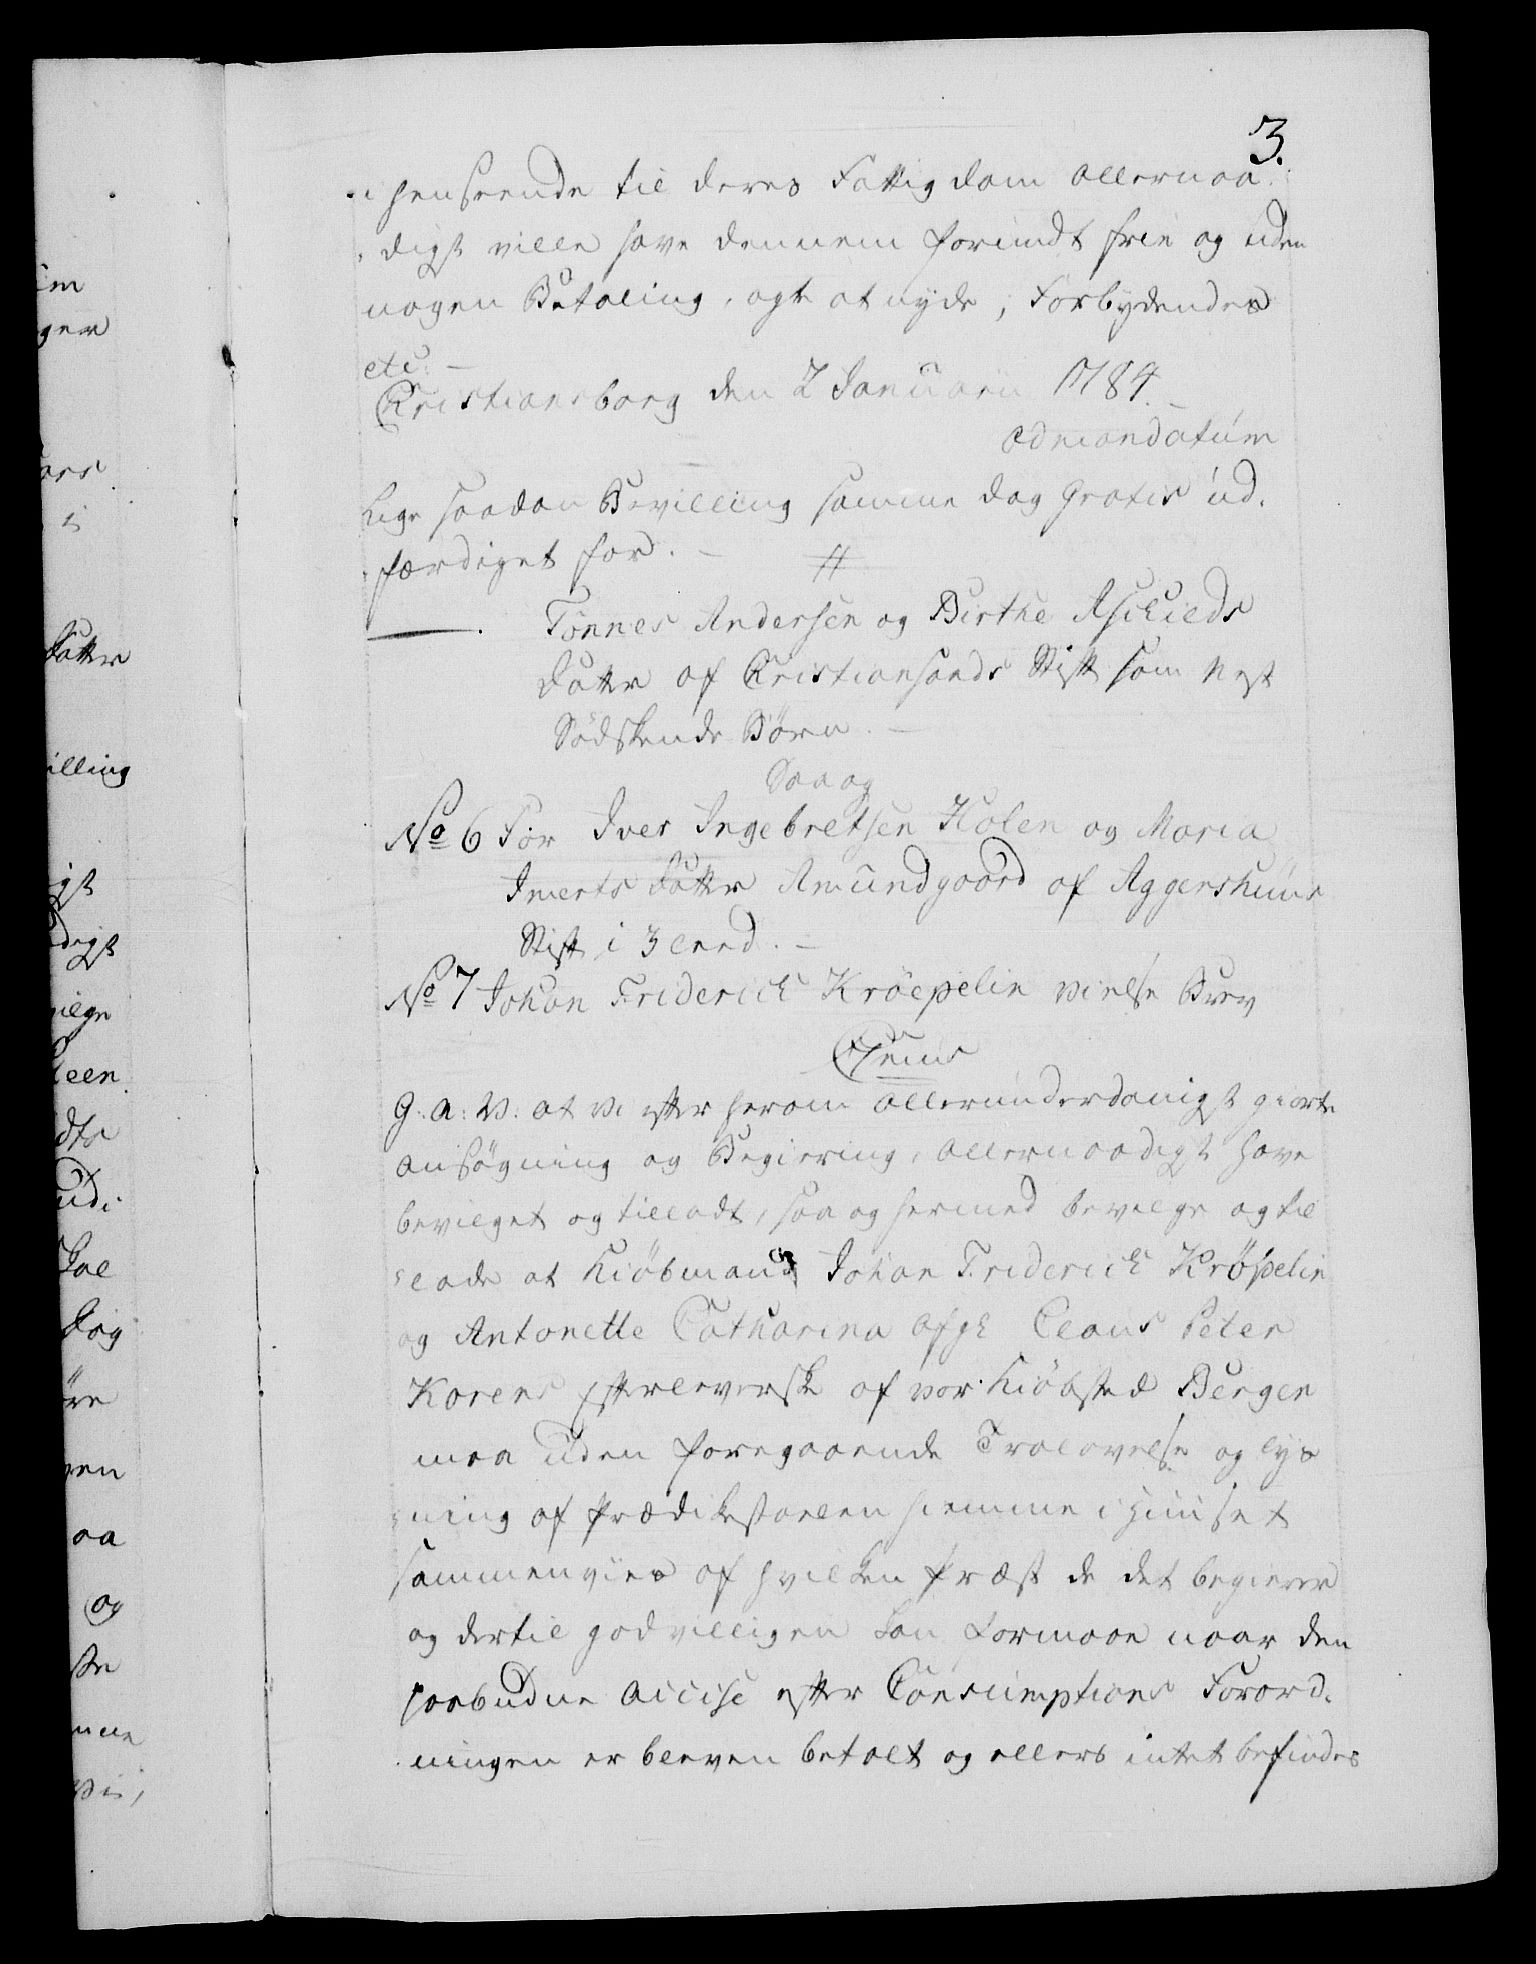 3.
i henseende til deres Fattigdom allernaa-
digst ville have dennem forundt frie og uden
nogen Betaling, agte at nyde, Forbydendes
etc: –
Christiansborg den 2 Januarii 1784 –
admandatum
Lige saadan Bevilling samme dag Gratis ud-
færdiget for. – //
Tønnes Andersen og Birthe
datter af Christiansands Stift som Nest
Sødskende Børn. –
Saa og
No 6 For Iver Ingebretsen Holen og Maria
datter Amundgaard af Aggershuus
Stift i 3 leed. –
No 7 Johan Friderich Kröepelin vielse Brev
G. A. V: at vi efter herom allerunderdanigst giorte
ansøgning og Begiering, allernaadigst have
bevilget og tilladt, saa og hermed bevilge og til
lade at Kiøbmand Johan Friderich Kröpelin
og Antonette Catharina afgl Claus Peter
Korens Efterleverske af vor Kiøbsted Bergen
maa uden foregaaende Trolovelse og lys
ning af Prædikestoelen hiemme i Huuset
sammenvies af hvilken Præst de det begierer
og dertil godvilligen kan formaae naar den
paabudne Accise efter Consumptions Forord-
ningen er bleven betalt og ellers intet befindes
im
ger
ars
i
datter
illing
gst
digst
vilge
leen
dts
udi
skal
dog
øre
ven
aa
og
ste